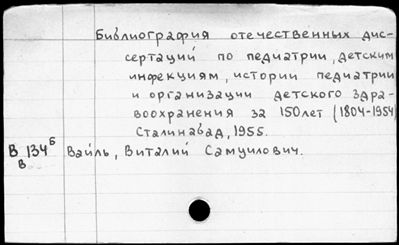 Библиография отечественных дис-
сертаций по педиатрии, детским
инфекциям, истории педиатрии
и организации детского здра-
воохранения за 150 лет (1804-1954)
Сталинабад, 1955.
В 134 б Вайль, Виталий Самуилович.
В